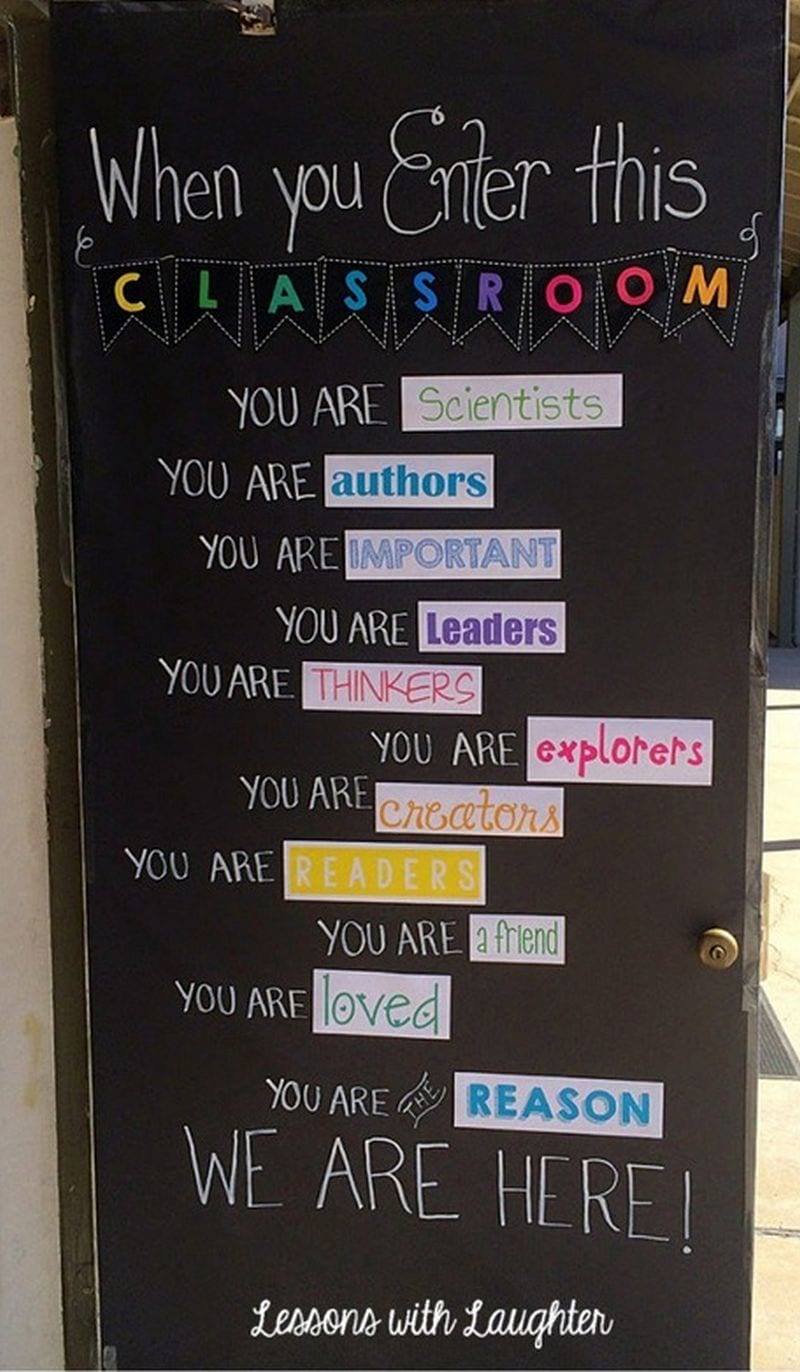 When you Enter this
CLASSROOM
YOU ARE Scientists
YOU ARE authors
YOU ARE IMPORTANT
YOU ARE Leaders
YOU ARE THINKERS
YOU ARE explorers
YOU ARE creators
YOU ARE READERS
YOU ARE a friend
YOU ARE loved
YOU ARE THE REASON
WE ARE HERE!
Lessons with Laughter